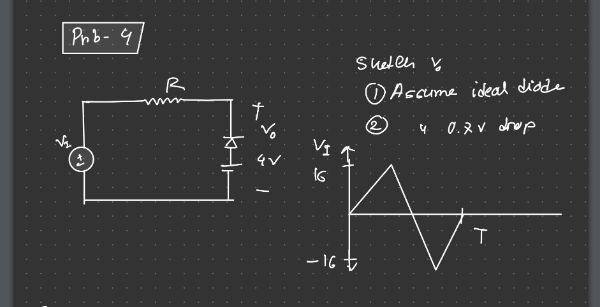 Prob- 4
Sketch Vo
① Assume ideal diode
② " 0.7V drop
R
+
Vo
4V
-
VI
±
VI
16
-16
T